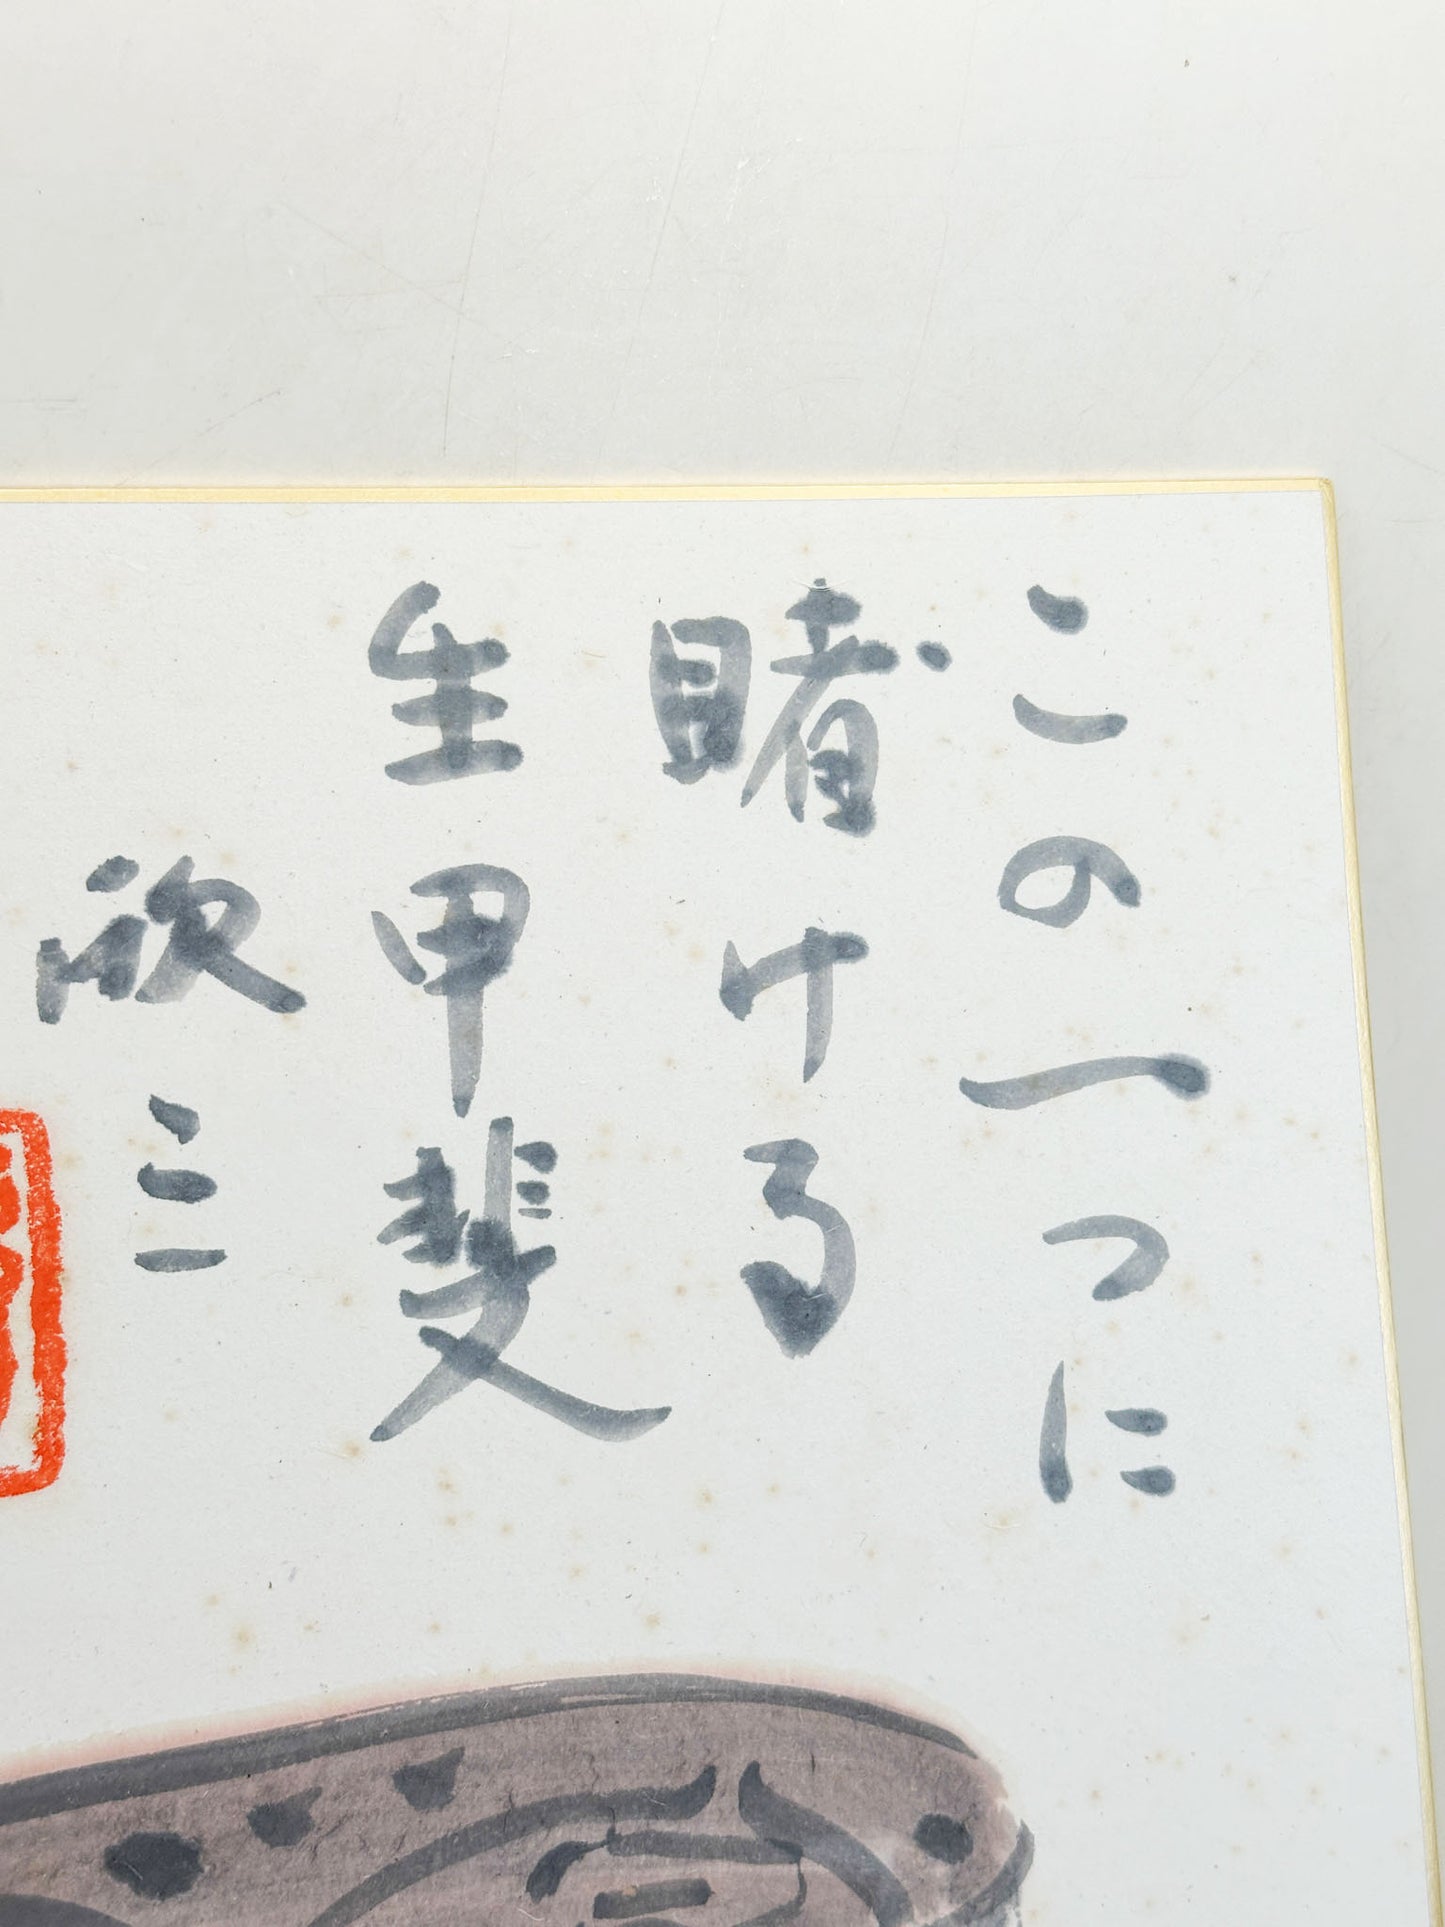 この一つに
賭ける
生甲斐
欣三